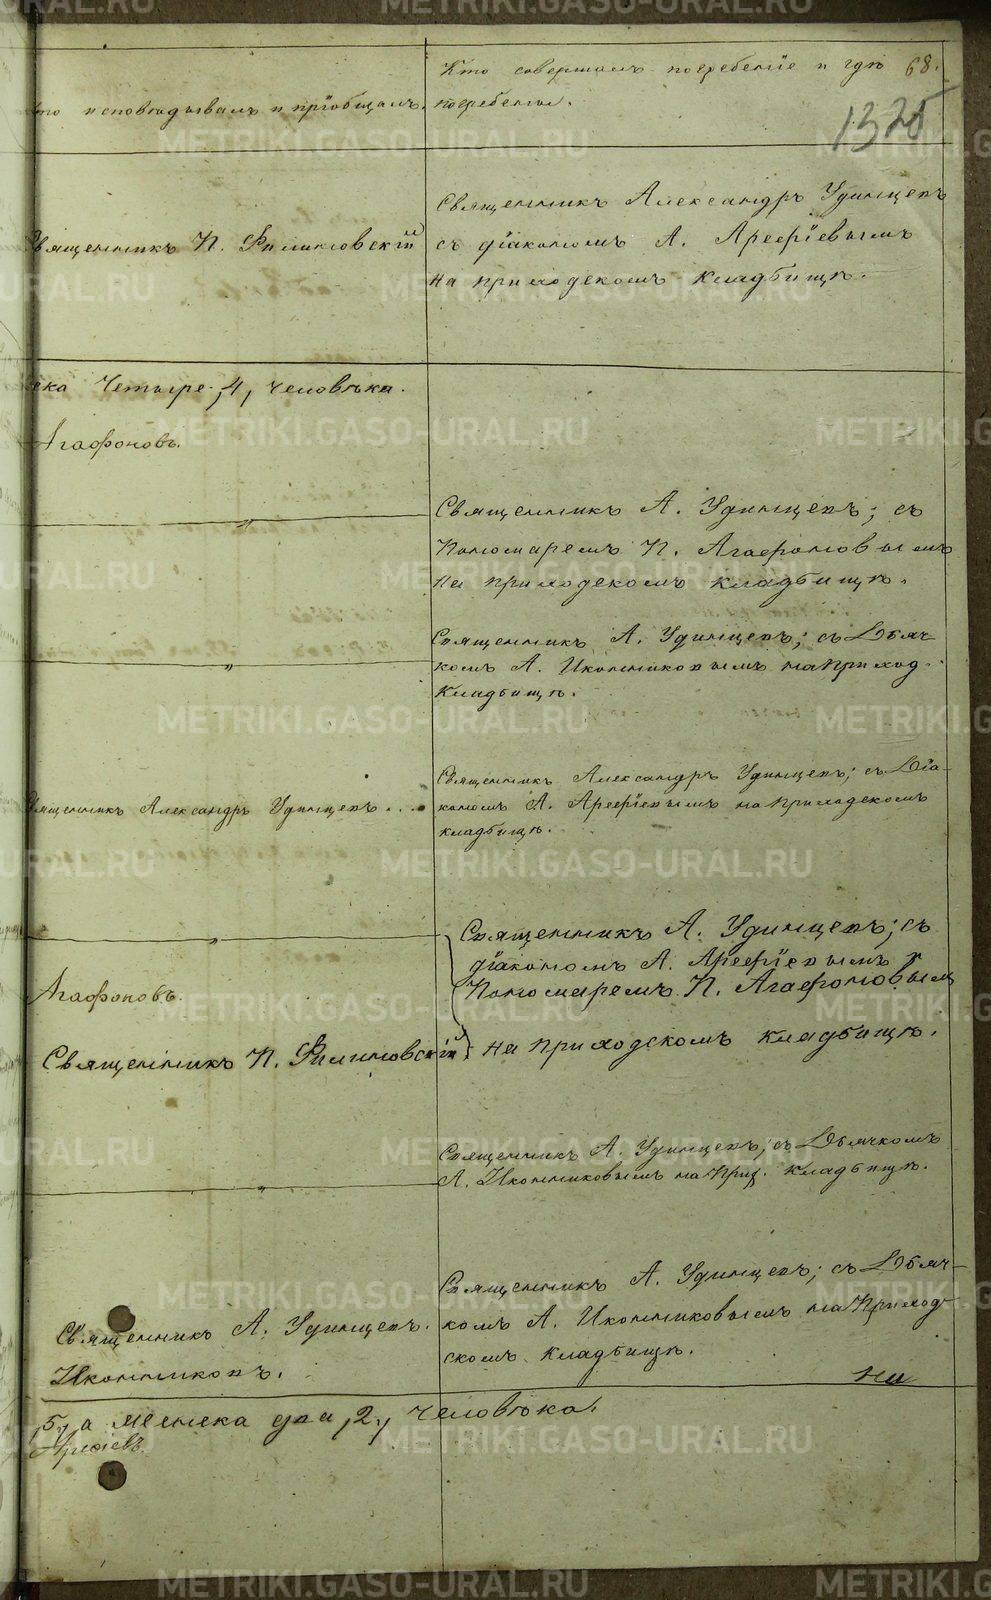 Кто исповѣдывалъ и пріобщалъ.
Кто совершалъ погребеніе и гдѣ
погребены.
68.
1325
Священникъ П. Филиповскій
Священникъ Александръ Удинцевъ
съ діакономъ А. Арефіевымъ
на приходскомъ кладбищѣ.
ска Четыре ,4, человѣка.
Агафоновъ.
„
Священникъ А. Удинцевъ; съ
Пономаремъ П. Агафоновымъ
на приходскомъ кладбищѣ.
„
Священникъ А. Удинцевъ; съ Дьяч-
комъ А. Иконниковымъ на приход.
кладбищѣ.
Священникъ Александръ Удинцевъ...
Священникъ Александръ Удинцевъ; съ Діа-
кономъ А. Арефіевымъ на приходскомъ
кладбищѣ.
„
Агафоновъ.
Священникъ П. Филиповскій
Священникъ А. Удинцевъ; съ
діакономъ А. Арефіевымъ и
Пономаремъ П. Агафоновымъ
на приходскомъ кладбищѣ.
„
Священникъ А. Удинцевъ; съ Дьячкомъ
А. Иконниковымъ на прих. кладбищѣ.
Священникъ А. Удинцевъ.
Иконниковъ.
Священникъ А. Удинцевъ; съ Дьяч-
комъ А. Иконниковымъ на приход-
скомъ кладбищѣ.
,5, а женска два ,2, человѣка.
Арефіевъ.
METRIKI.GASO-URAL.RU